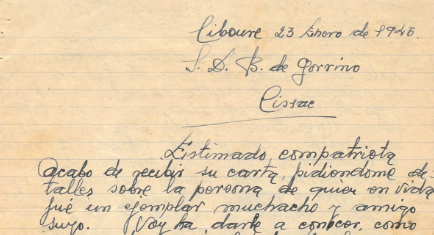 Ciboure 23 Enero de 1946.
S. D. B. de Gorrino
Cissac
Estimado compatriota
Acabo de recibir su carta, pidiendome de-
talles sobre la persona de quien en vida
fué un ejemplar muchacho y amigo
suyo. Voy ha darle a conocer, como